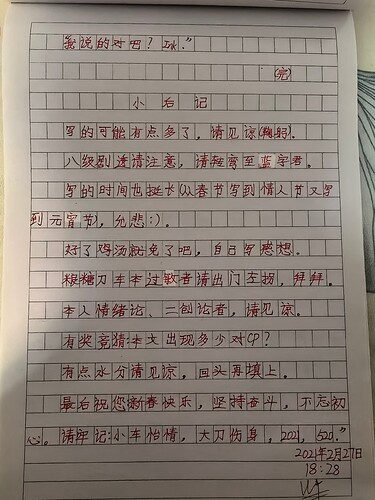 我说的对吧？Ink.”
(完)
小后记
写的可能有点多了，请见谅(鞠躬).
八级剧透请注意，请转弯至蓝字君。
写的时间也挺长(从春节写到情人节又写
到元宵节)，允悲:).
好了鸡汤就免了吧，自己写感想。
粮糖刀车本过敏者请出门左拐，拜拜。
本人情绪论、二创论者，请见谅。
有奖竞猜:本文出现多少对CP？
有点水分请见谅，回头再填上。
最后祝您新春快乐，坚持奋斗，不忘初
心。请牢记:小车怡情，大刀伤身，2021，520。”
2021年2月27日
18:28